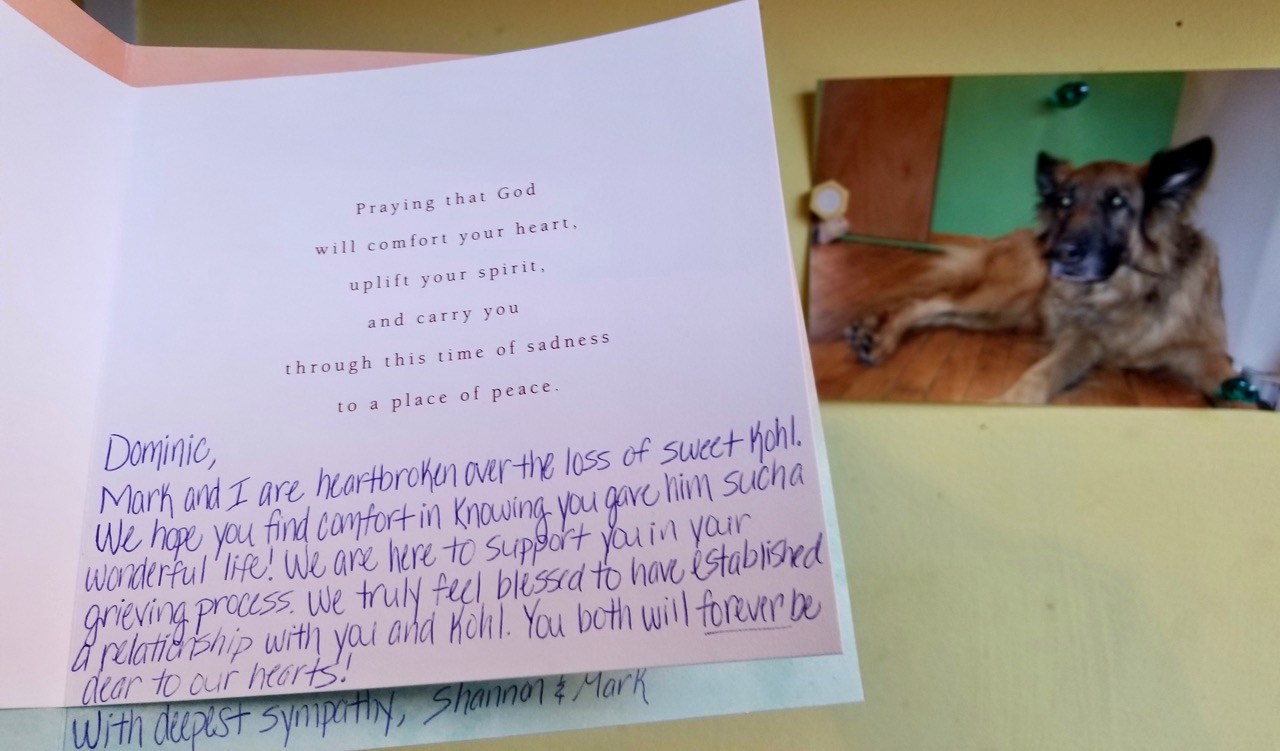 Praying that God
will comfort your heart,
uplift your spirit,
and carry you
through this time of sadness
to a place of peace.
Dominic,
Mark and I are heartbroken over the loss of sweet Kohl.
We hope you find comfort in knowing you gave him such a
wonderful life! We are here to support you in your
grieving process. We truly feel blessed to have established
a relationship with you and Kohl. You both will forever be
dear to our hearts!
With deepest sympathy, Shannon & Mark